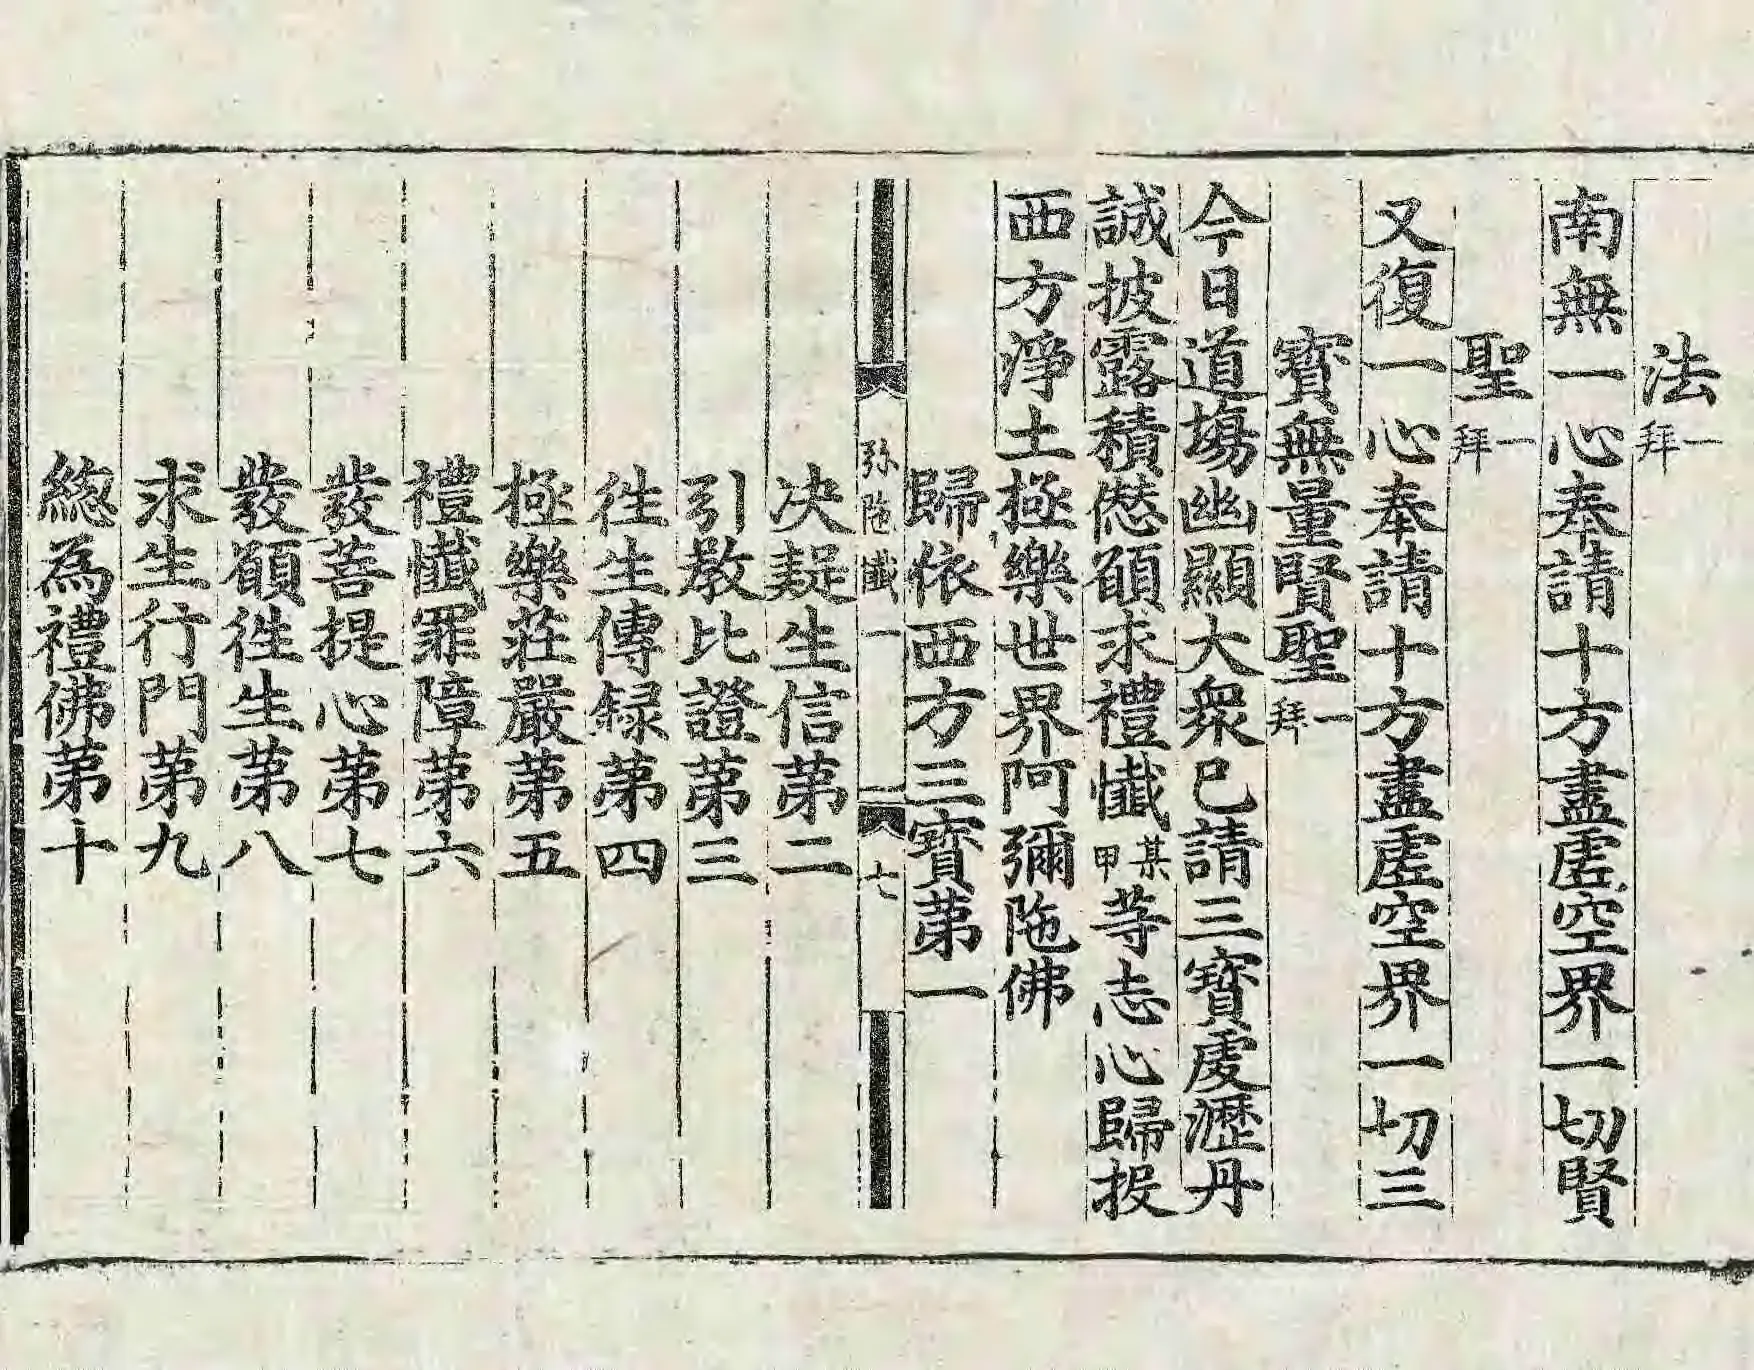 法一拜
南無一心奉請十方盡虛空界一切賢
聖一拜
又復一心奉請十方盡虛空界一切三
寳無量賢聖一拜
今日道塲幽顯大衆已請三寳處瀝丹
誠披露積愆願求禮懴某甲等志心歸投
西方淨土極樂世界阿彌陁佛
歸依西方三寳第一
弥陁懴一 七
决疑生信第二
引教比證第三
徃生傳録第四
極樂莊嚴第五
禮懴罪障第六
發菩提心第七
發願徃生第八
求生行門第九
緫為禮佛第十